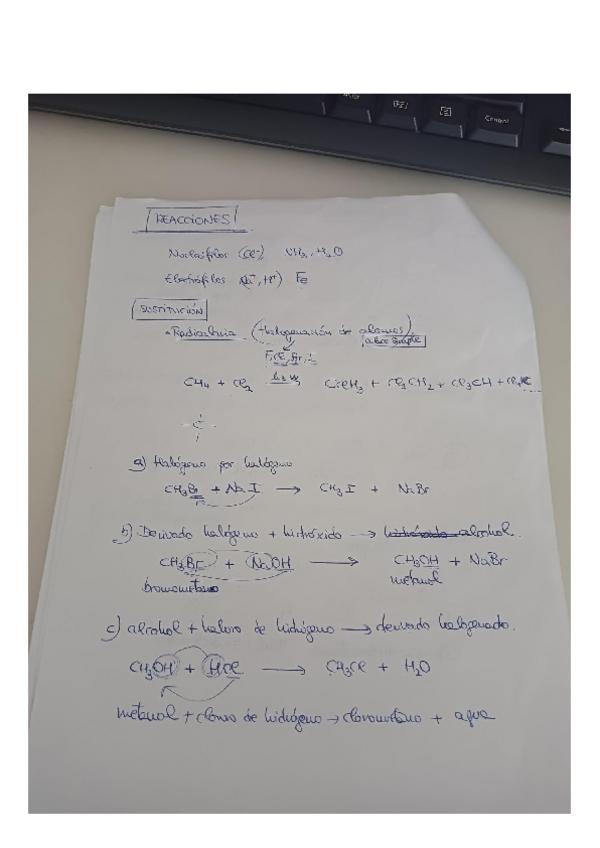 REACCIONES
Nucleófilos (Cl⁻) NH₃, H₂O
Electrófilos (Na⁺, H⁺) Fe
SUSTITUCIÓN
Radicalaria (Halogenación de alcanos)
F, Cl, Br, I
CH₄ + Cl₂ → ClCH₃ + Cl₂CH₂ + Cl₃CH +
C
a) Halógeno por halógeno
CH₃Br + NaI → CH₃I + NaBr
b) Derivado halógeno + hidróxido → alcohol.
CH₃Br + NaOH → CH₃OH + NaBr
bromometano metanol
c) alcohol + haluro de hidrógeno → derivado halogenado.
CH₃OH + HCl → CH₃Cl + H₂O
metanol + cloruro de hidrógeno → clorometano + agua